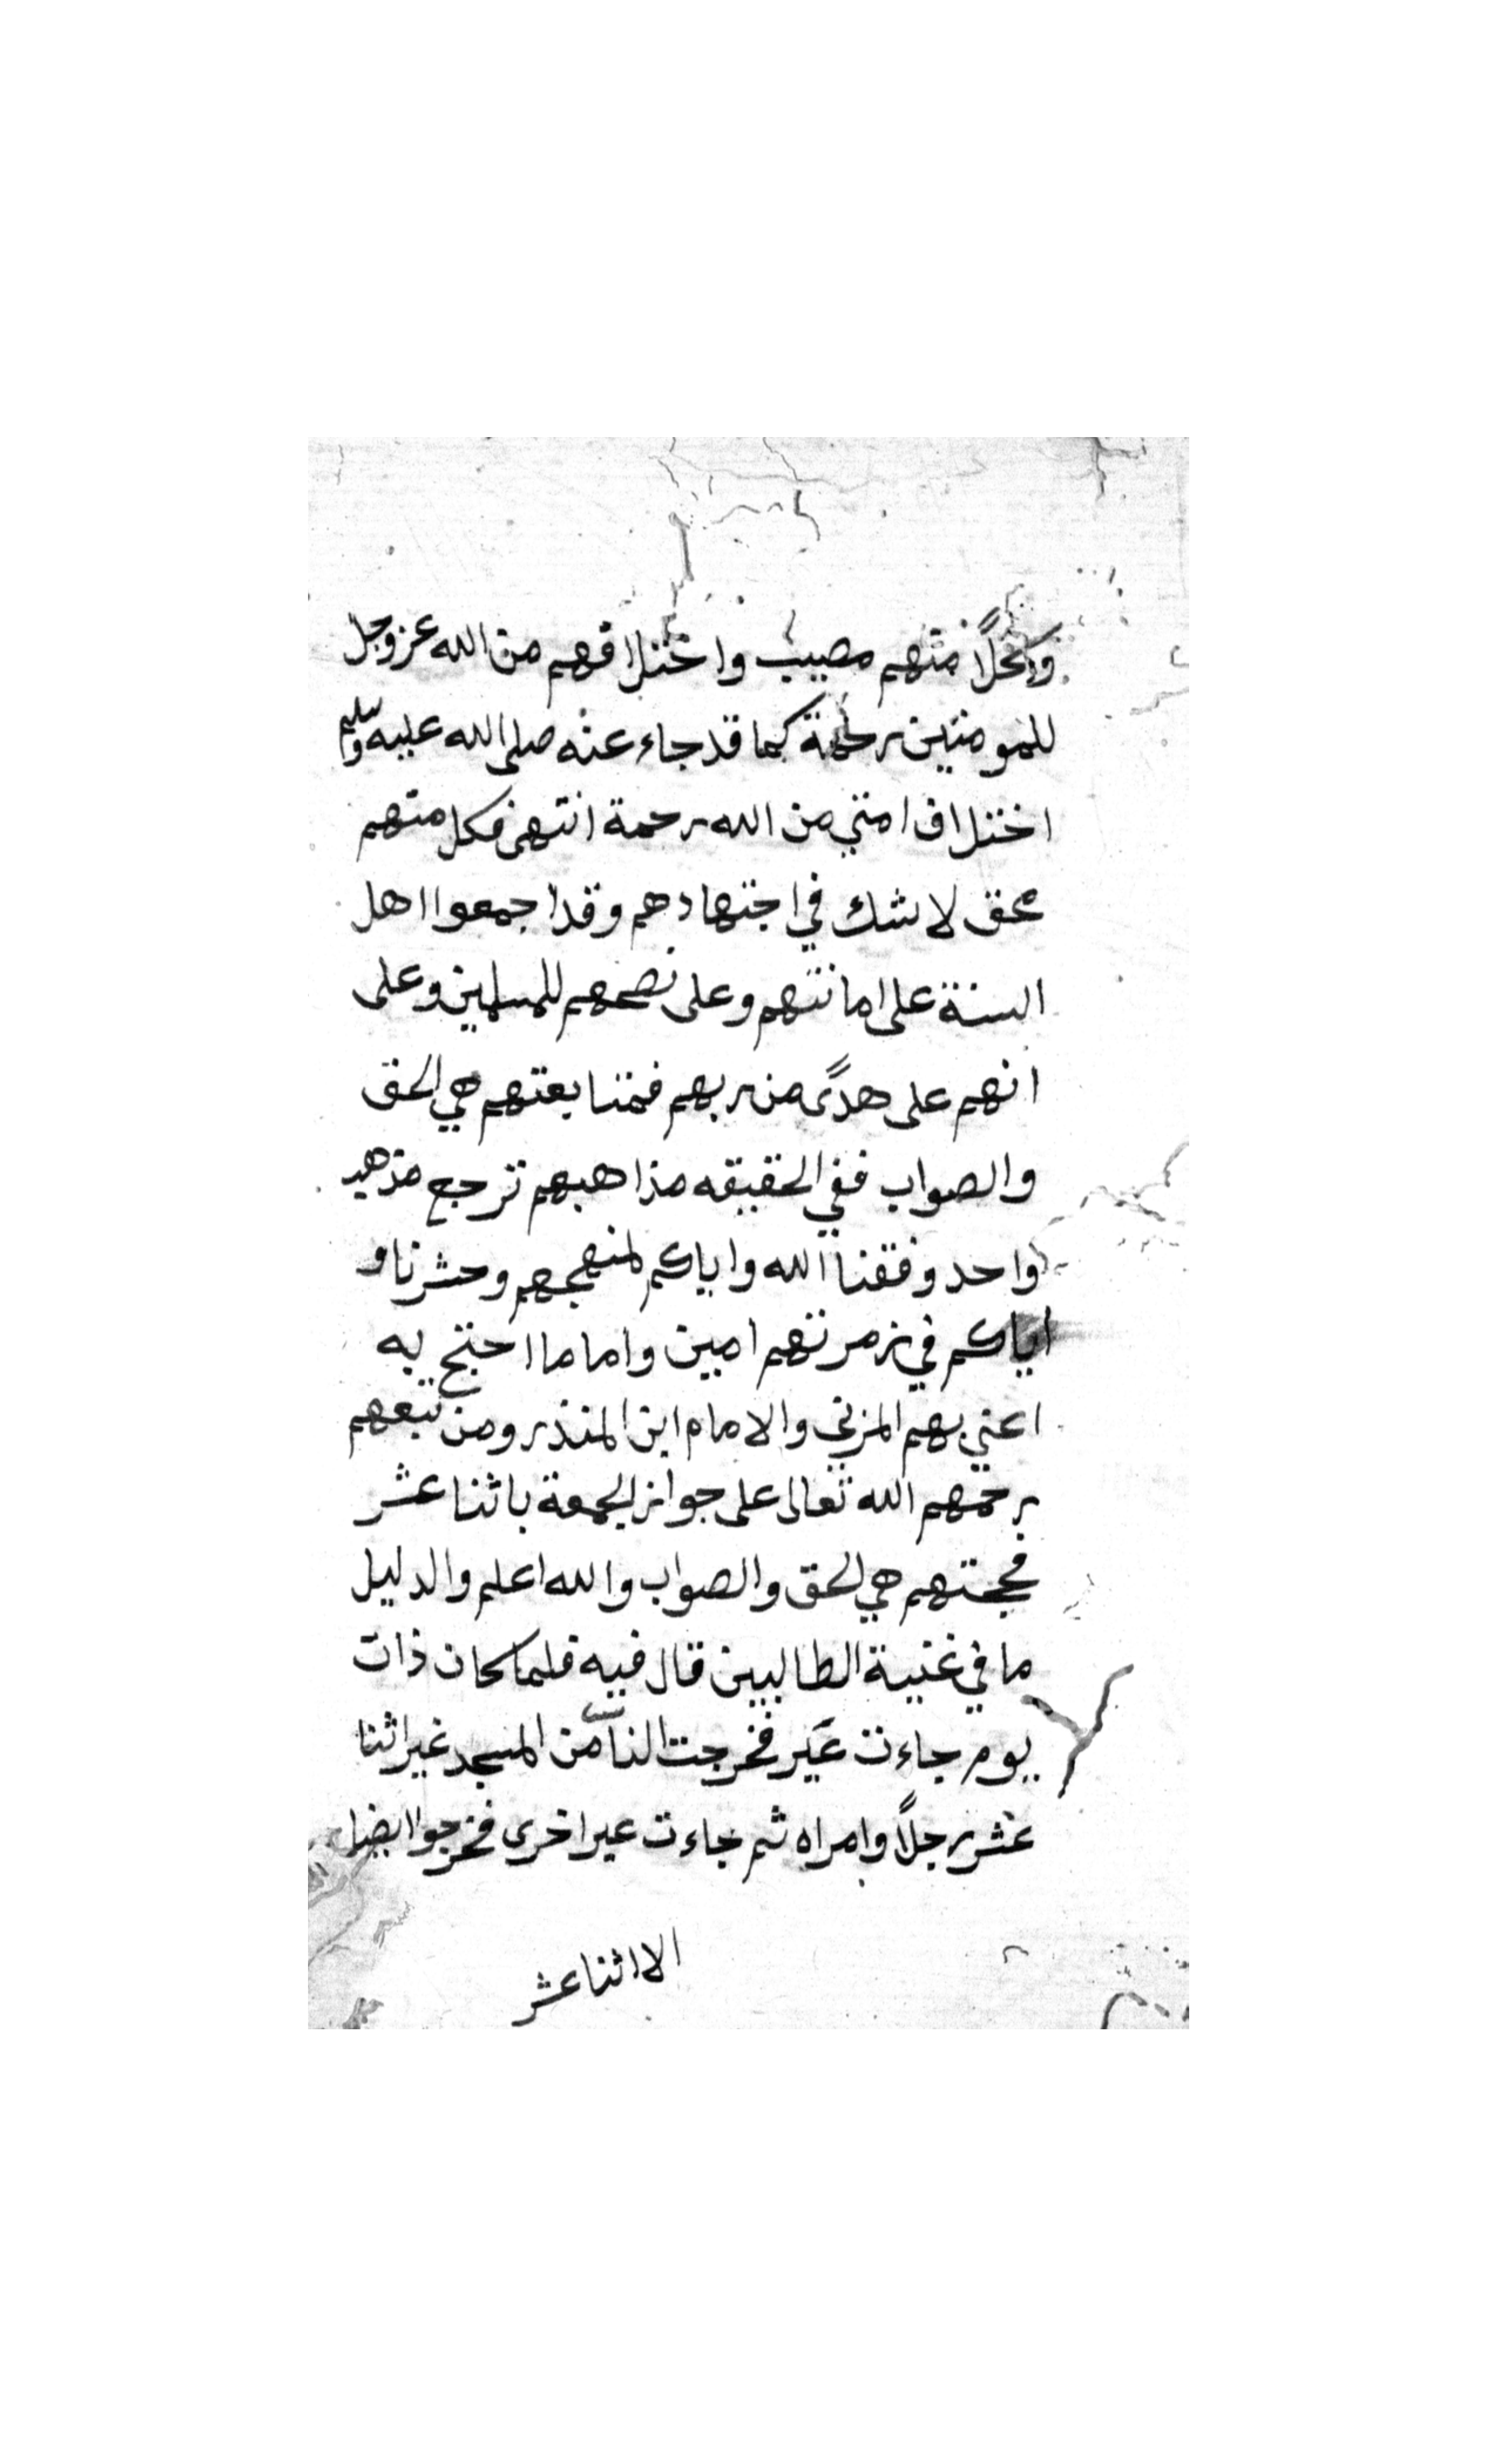 وكلًا منهم مصيب واختلافهم من الله عز وجل
للمومنين رحمة كما قد جاء عنه صلى الله عليه وسلم
اختلاف امتي من الله رحمة انتهى فكل منهم
محق لا شك في اجتهادهم وقد اجمعوا اهل
السنة على امانتهم وعلى نصحهم للمسلمين وعلى
انهم على هدًى من ربهم فمتابعتهم هي الحق
والصواب ففي الحقيقه مذاهبهم ترجع مذهب
واحد وفقنا الله واياكم لمنهجهم وحشرنا و
اياكم في زمرتهم امين واما ما احتج به
اعني بهم المزني والامام ابن المنذر ومن تبعهم
رحمهم الله تعالى على جواز الجمعة باثنا عشر
فحجتهم هي الحق والصواب والله اعلم والدليل
ما في غنية الطالبين قال فيه فلما كان ذات
يوم جاءت عير فخرجت الناس من المسجد غير اثنا
عشر رجلًا وامراه ثم جاءت عير اخرى فخرجوا ايضا
الا اثنا عشر